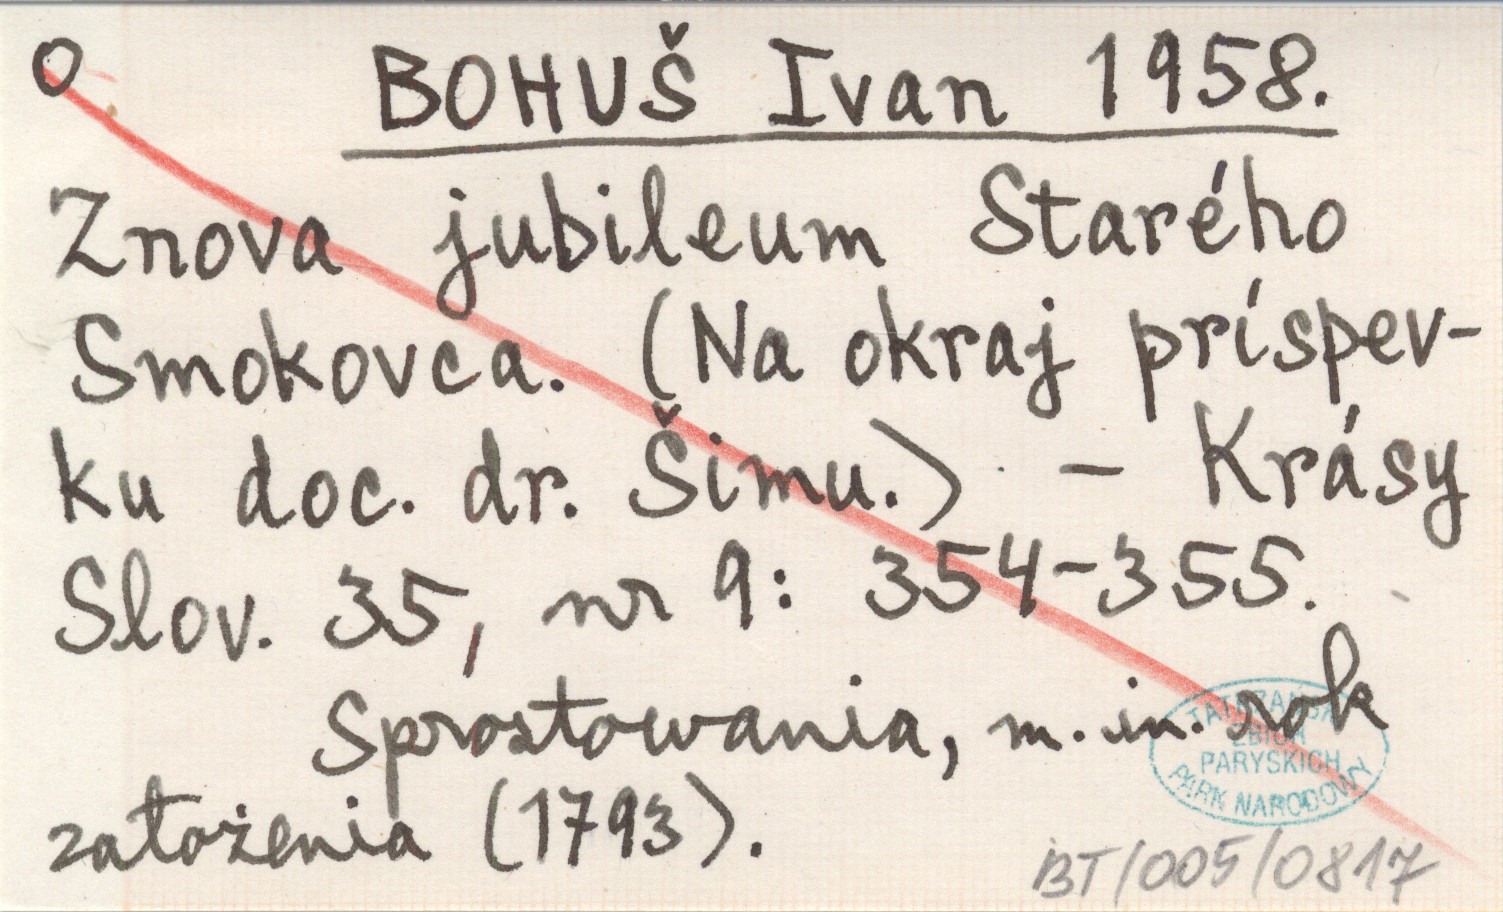 BOHUŠ Ivan 1958.
Znova jubileum Starého
Smokovca. (Na okraj príspev-
ku doc. dr. Šimu.) - Krásy
Slov. 35, nr 9: 354-355.
Sprostowania, m.in. rok
założenia (1793).
TATRZAŃSKI
ZBIÓR
PARYSKICH
PARK NARODOWY
BT/005/0817